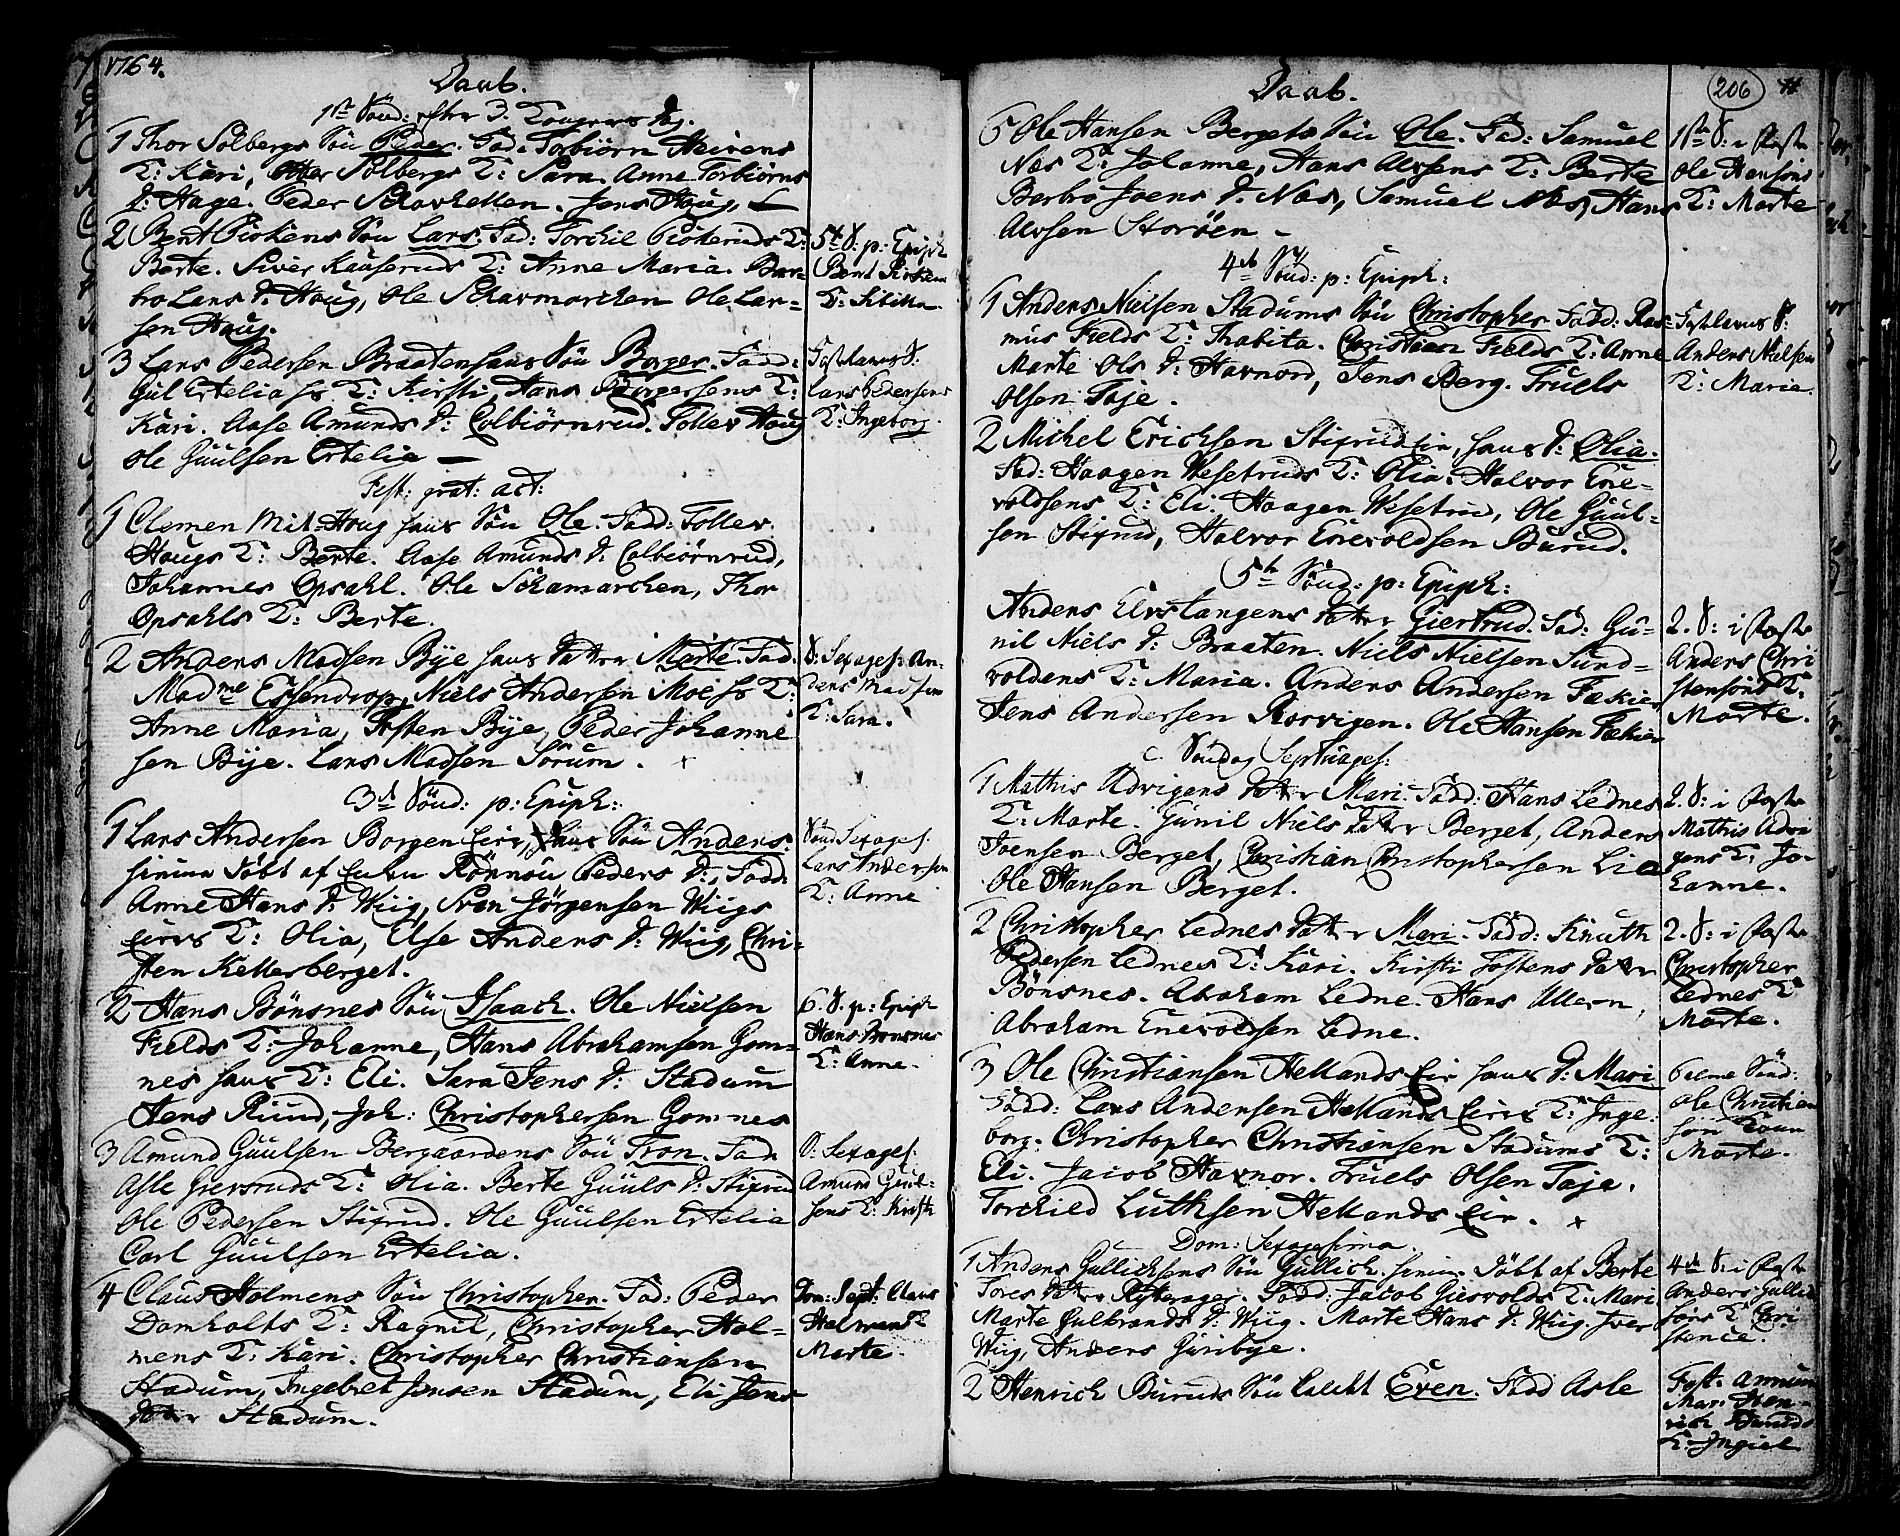 1764.
Daab.
1ste Sönd: efter 3. Kongers dag.
1 Thor Solbergs Sön Peder. Fad: Torbiörn Heirens
K: Kari, Solbergs K: Sara. Anne Torbiörns
d: Hage. Peder Skarhellen. Jens Haug.
2 Bent Pirkens Sön Lars. Fad: Torchil K:
Berte. Siver K: Anne Maria. Bar-
bro Lars d: Haug, Ole Skarmarchen Ole Lar-
sen Haug.
3 Lars Pedersen Braaten hans Sön Borger. Fadd:
Gul Ertelia hs K: Kirsti, Hans Borgersens K:
Kari. Aase Amunds d: Colbiörnrud. Tollev Haug
Ole Guulsen Ertelie
Fest: grat: act:
1 Clemen Mil-Houg hans Sön Ole. Fadd: Tollev
Haugs K: Berte. Aase Amunds d: Colbiörnrud,
Johannes Opsahl. Ole Skamarchen, Thor
Opsahls K: Berte.
2 Anders Madsen Bye hans datter Marte. Fad:
Madme Essendrop, Niels Andersen Moe hs K:
Anne Maria, Tosten Bye, Peder Johanne
sen Bye. Lars Madsen Sörum.
3d Sönd: p: Epiph:
1 Lars Andersen Borgen Eier, hans Sön Anders.
hiema döbt af Rönnou Peders d:, Fadd:
Anne Hans d: Wiig, Sven Jörgensen Wiigs
Eiers K: Olia, Else Anders d: Wiig, Chri-
sten Kellerberget.
2 Hans Bönsnes Sön Isaach. Ole Nielsen
Fields K: Johanne, Hans Abrahamsen Gom-
nes hans K: Eli. Sara Jens d: Stadum
Jens Rund, Joh: Christophersen Gomnes
3 Amund Guulsen Bergaardens Sön Tron. Fad.
Asle Grevsruds K: Olia. Berte Guuls d: Stixrud
Ole Pedersen Stixrud. Ole Guulsen Ertelia
Carl Guulsen Ertelia.
4 Claus Holmens Sön Christopher. Fad: Peder
Domholts K: Ragnil, Christopher Hol-
mens K: Kari. Christopher Christiansen
Stadum, Ingebret Jensen Stadum, Eli Jens
datter Stadum.
5te S: p: Epiph
Bent Pirken
K:
Fastelavns S.
Lars Pedersens
K: Ingeborg.
S: Sexages: An-
ders Madsen
K: Sara.
Sönd Sexages.
Lars Andersen
K: Anne
6. S. p: Epiph
Hans Bonsnes
K: Anne.
S: Sexages:
Amund Guul-
sens K: Kirsti
Dom: Sept: Claus
Holmens K:
Marte.
206
Daab.
5 Ole Hansen Bergets Sön Ole. Fad: Samuel
Næs K: Johanne, Hans Alvsens K: Berte
Barbro Joens d: Næs, Samuel Næs, Hans
Alvsen Storöen
4de Sönd: p: Epiph:
1 Anders Nielsen Stadums Sön Christopher. Fadd: Ras-
mus Fields K: Thabita. Christian Fields K: Anne
Marte Ols d: Havnord, Jens Berg. Truels
Olsen Faje.
2 Michel Erichsen Stixrud Eier, hans d: Olia.
Fad: Haagen Wesetruds K: Olia. Halvor Ene-
voldsens K: Eli. Haagen Wesetrud, Ole Guul-
sen Stixrud, Halvor Enevoldsen Burud.
5te Sönd: p: Epiph:
Anders Elvstangens datter Giertrud. Fad: Gu-
nil Niels d: Braaten. Niels Nielsen Sund-
voldens K: Maria. Anders Andersen Fækier
Jens Andersen Rorvigen. Ole Hansen Fækier
Söndag Septuages:
1 Mathis Udvigens datter Mari. Fadd: Hans Lednes
K: Marte. Gunil Niels datter Berget, Anders
Joensen Berget, Christian Christophersen Lie
Ole Hansen Berget.
2 Christopher Lednes datter Mari. Fadd: Knuth
Pedersen Lednes K: Kari. Kirsti Tostens datter
Bönsnes. Abraham Ledne. Hans Ullern,
Abraham Enevoldsen Ledne.
3 Ole Christiansen Hellands Eier hans d: Mari
Fadd: Lars Andersen Hellands Eiers K: Inge-
borg. Christopher Christiansen Stadums K:
Eli. Jacob Havnor. Truels Olsen Faje.
Torchied Luthsen Hellands Eier.
Dom: Sexagesima.
1 Anders Gullichsens Sön Gullich. hiem döbt af Berte
Tores datter Rytterager. Fadd: Jacob Giesvolds K: Mari
Marte Gulbrands d: Wiig. Marte Hans d: Wiig. Iver
Wiig, Anders Guribye.
2 Henrich Buruds Sön kaldt Even. Fadd Asle
1ste S: i Faste
Ole Hansöns
K: Marte
Fastelavns S:
Anders Nielsens
K: Marie.
2. S: i Faste
Anders Chri
stensöns K:
Marte.
2. S: i Faste
Mathis Udvi
gens K: Jo-
hanne.
2. S: i Faste
Christopher
Lednes K
Marte.
Palme Sönd:
Ole Christian
sön
Marte.
4de S: i Faste
Anders Gullich
söns K: Chri
stence.
Fest: annunc
Mar: Hen-
rich Buruds
K: Ingier